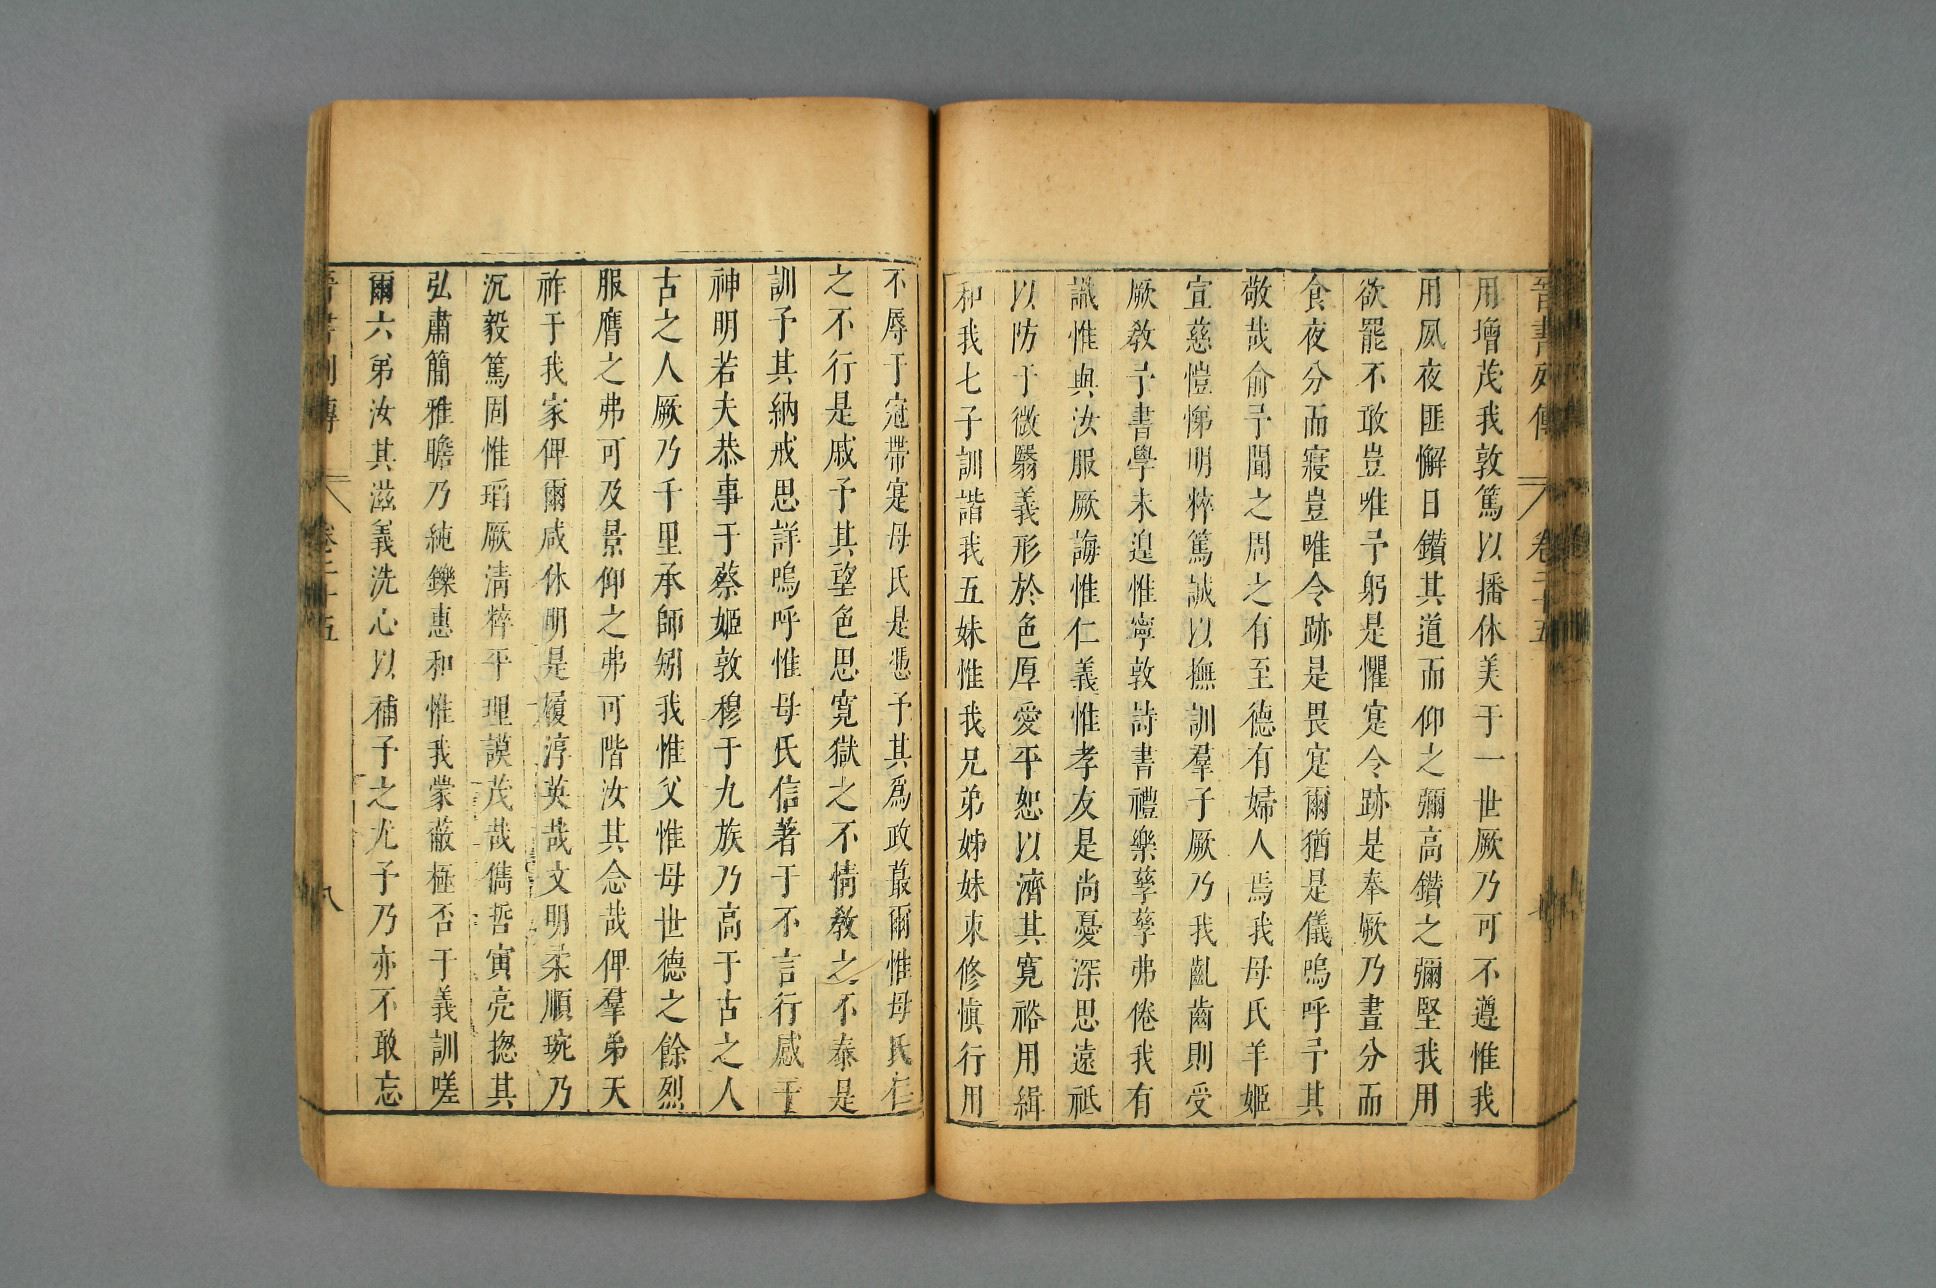 晉書列傳 卷二十五
用增茂我敦篤以播休美于一世厥乃可不遵惟我
用夙夜匪懈日鑽其道而仰之彌高鑽之彌堅我用
欲罷不敢豈唯予躬是懼寔令跡是奉厥乃晝分而
食夜分而寢豈唯令跡是畏寔爾猶是儀嗚呼予其
敬哉俞予聞之周之有至德有婦人焉我母氏羊姬
宣慈愷悌明粹篤誠以撫訓羣子厥乃我齓齒則受
厥教予書學未遑惟寧敦詩書禮樂孳孳弗倦我有
識惟與汝服厥誨惟仁義惟孝友是尚憂深思遠祗
以防于微翳義形於色厚愛平恕以濟其寛裕用緝
和我七子訓諧我五妹惟我兄弟姊妹束修慎行用
不辱于冠帶寔母氏是憑予其爲政蕞爾惟母氏仁
之不行是戚予其望色思寛獄之不情教之不泰是
訓予其納戒思詳嗚呼惟母氏信著于不言行感于
神明若夫恭事于蔡姬敦穆于九族乃高于古之人
古之人厥乃千里承師矧我惟父惟母世德之餘烈
服膺之弗可及景仰之弗可階汝其念哉俾羣弟天
祚于我家俾爾咸休明是履淳英哉文明柔順琬乃
沉毅篤固惟瑫厥清粹平理謨茂哉儁哲寅亮揔其
弘肅簡雅瞻乃純鑠惠和惟我蒙蔽極否于義訓嗟
爾六弟汝其滋義洗心以補予之尤予乃亦不敢忘
晉書列傳 卷二十五 八